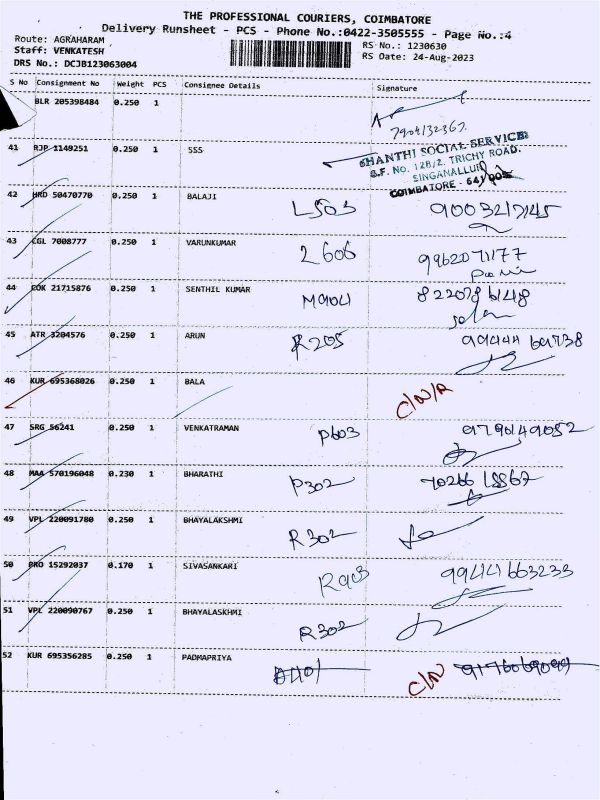 THE PROFESSIONAL COURIERS, COIMBATORE
Delivery Runsheet - PCS - Phone No.:0422-3505555 - Page No.:4
Route: AGRAHARAM
Staff: VENKATESH
DRS No.: DCJB123063004
RS No.: 1230630
RS Date: 24-Aug-2023
S No Consignment No Weight PCS Consignee Details Signature
BLR 205398484 0.250 PCS
41 RJP 1149251 0.250 1 SSS
SHANTHI SOCIAL SERVICE
S.F. No. 12B/2. TRICHY ROAD.
SINGANALLUR
COIMBATORE - 641 005
42 HRD 50470770 0.250 1 BALAJI L503 9003217145
43 CGL 7008777 0.250 1 VARUNKUMAR 2606 9962071177
44 COK 21715876 0.250 1 SENTHIL KUMAR M904 8220786148
45 ATR 3204576 0.250 1 ARUN R205 9944469738
46 KUR 695368026 0.250 1 BALA C/N/R
47 SRG 56241 0.250 1 VENKATRAMAN P603 9790149052
48 MAA 570196048 0.230 1 BHARATHI P302
49 VPL 220091780 0.250 1 BHAYALAKSHMI R302
50 PRO 15292037 0.170 1 SIVASANKARI R903 9944663233
51 VPL 220090767 0.250 1 BHAYALASKHMI R302
52 KUR 695356285 0.250 1 PADMAPRIYA A401 C/N 9176069099